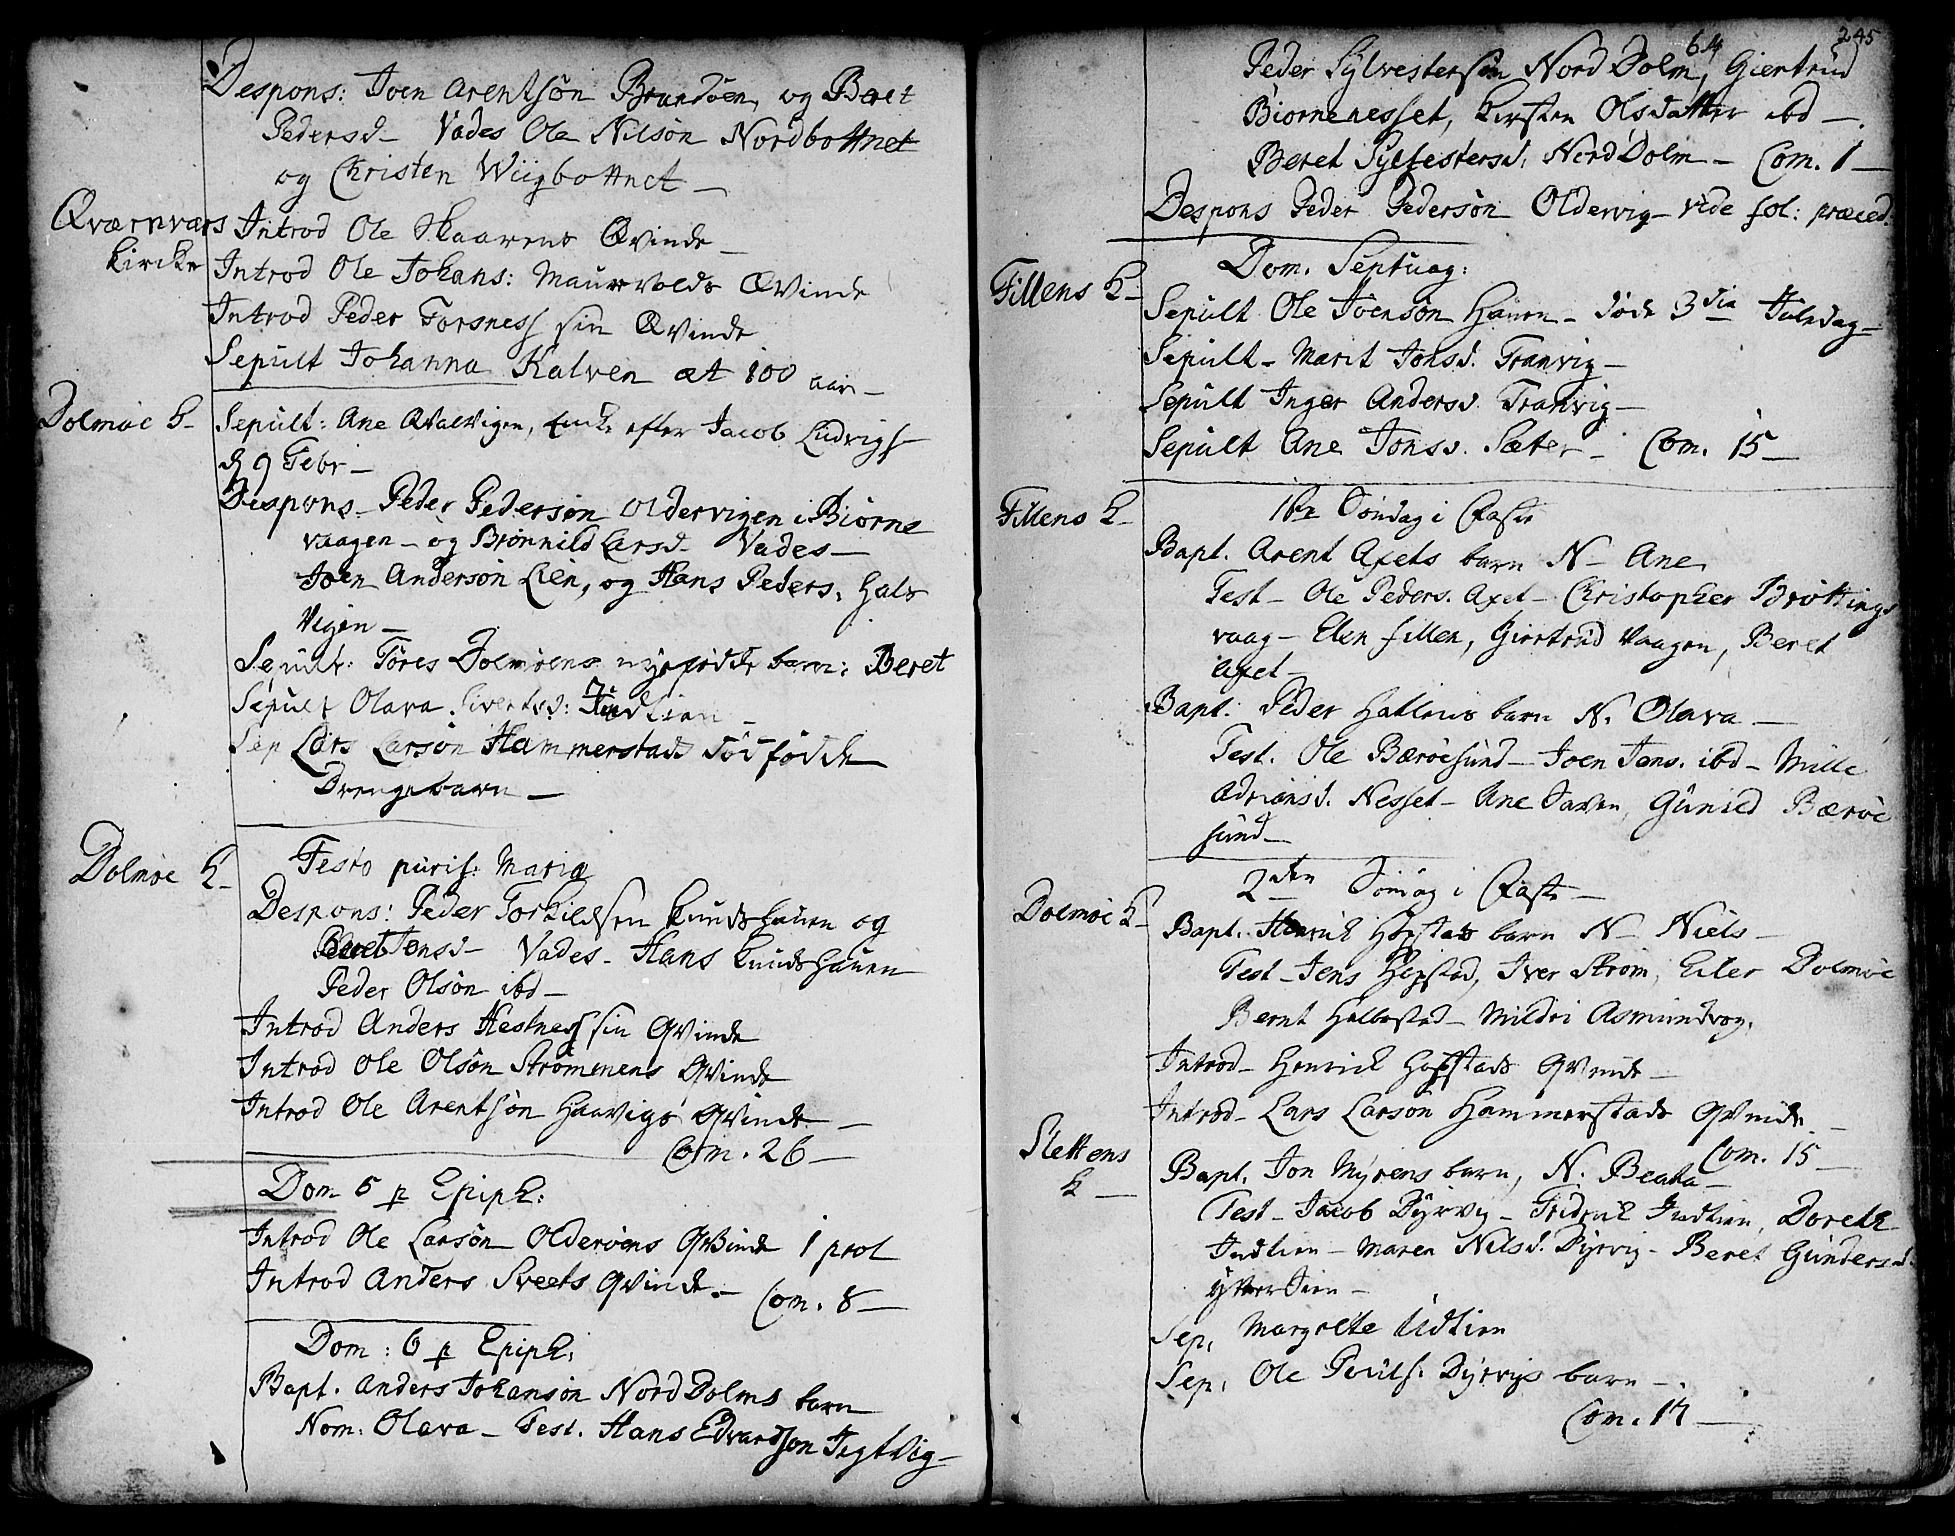 Despons: Joen Arentsøn Brandøen, og Beret
Pedersd – Vades Ole Nilsøn Nordbottnet
og Christen Wiigbottnet –
Qværnværs Kircke
Introd Ole Skaarens Qvinde –
Introd Ole Johans: Maursvolds Qvinde
Introd Peder Forsness sin Qvinde
Sepult Johanna Kalven æt 100 aar –
Dolmøe K –
Sepult: Ane Qvalvigen, Enke efter Jacob Ludvigs
d 9 Febr –
Despons – Peder Pedersøn Oldervigen i Biørne
vaagen – og Brønnild Larsd – Vades –
Joen Andersøn Lien, og Hans Peders. Hals
Vigen –
Sepult: Tøres Dolmøens nyefødde barn: Beret
Sepult Olava Siversd:
Sep Lars Larsøn Hammerstads dødfødde
Drengebarn –
Dolmøe K –
Festo purif: Mariæ
Despons: Peder Torkildsen Knudshauen og
Beret Jensd – Vades – Hans Knudshauen
Peder Olsøn ibd –
Introd Anders Hestness sin Qvinde
Introd Ole Olsøn Strømmens Qvinde
Introd Ole Arentsøn Haavigs Qvinde –
Com. 26 –
Dom 5 p Epiph:
Introd Ole Larsøn Olderøens Qvinde 1 prol
Introd Anders Sveets Qvinde –
Com. 8 –
Dom: 6 p Epiph:
Bapt. Anders Johansøn NordDolms barn
Nom: Olava – Test. Hans Edvardsøn Jegtvig –
245
64
Peder Sylvestersøn NordDolm, Giertrud
Biørnenesset, Kirsten Olsdatter ibd –
Beret Sylfestersd. NordDolm – Com. 1 –
Despons Peder Pedersøn Oldervig – vide fol: præced:
Dom. Septuag:
Fillens K –
Sepult Ole Joensøn Hauen – døde 3dia Juledag –
Sepult – Marit Jonsd. Tranvig –
Sepult Inger Andersd. Tranvig –
Sepult Ane Jonsd. Sæter – Com. 15 –
Fillens K –
1ste Søndag i Faste
Bapt. Arent Axets barn N – Ane
Test – Ole Peders. Axet – Christopher Brøttings
vaag – Elen Fillen, Giertrud Vaagen, Beret
Axet –
Bapt. Peder Hallens barn N. Olava –
Test. Ole Bærøesund – Joen Jens. ibd – Mille
Adriansd. Nesset – Ane Gunild Bærøe
sund –
Dolmøe K –
2den Søndag i Faste –
Bapt. Henrich Hopstads barn N – Niels –
Test – Jens Hopstad, Iver Strøm, Eiler Dolmøe
Bernt Helbostad – Mildri Asmundvog.
Introd – Henrich Hopstads Qvinde –
Introd – Lars Larsøn Hammerstads Qvinde –
Com. 15 –
Slettens K –
Bapt. Jon Myrens barn, N. Beata –
Test – Jacob Dyrvig – Fridrich Indtien, Doreth
Indtien – Maren Nilsd. Dyrvig – Beret Gundersd.
ytter
Sep. Margrete Udtien
Sep. Ole Pouls. Dyrvigs barn –
Com. 17 –